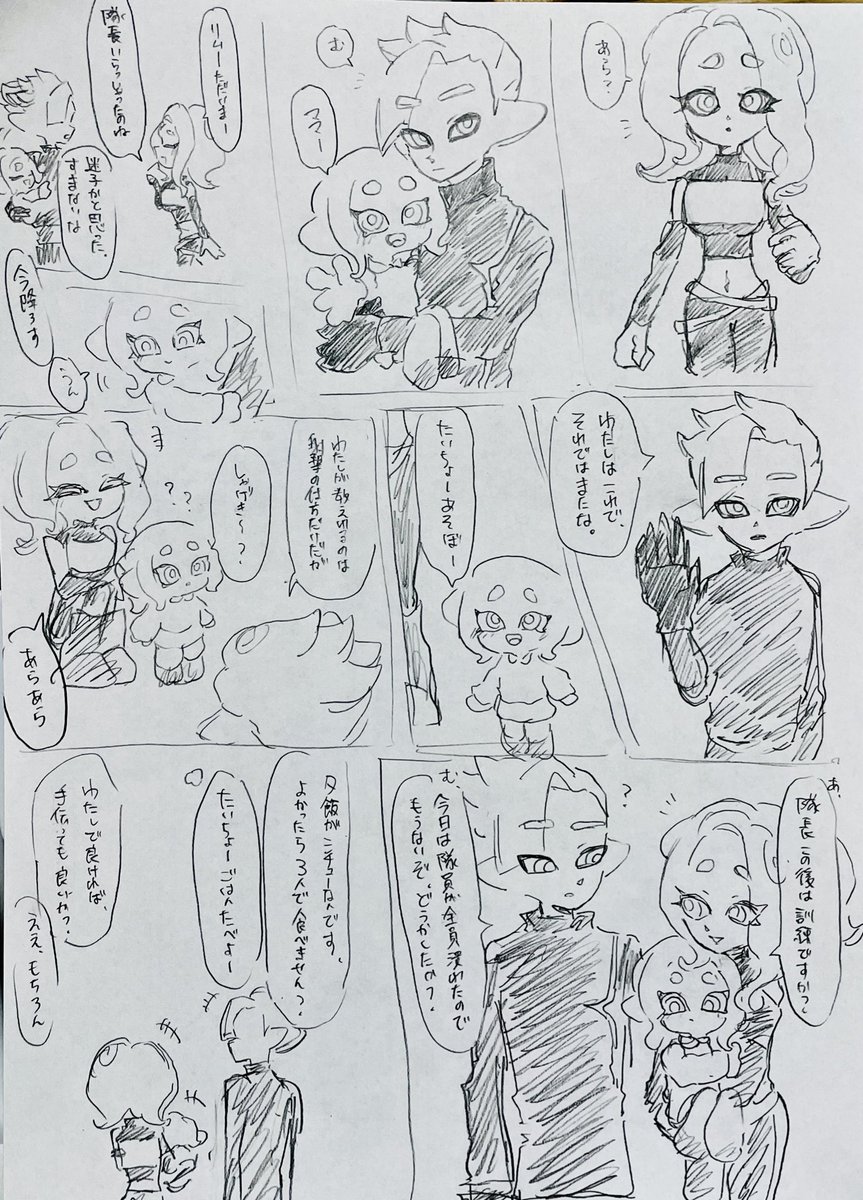 あら?
む
ママー
リムーただいまー
隊長いらっしゃったのね
迷子かと思った、
すまないな
今降ろす
うん
わたしはこれで、
それではまたな。
たいちょーあそぼー
わたしが教えれるのは
射撃の仕方だいだが
しゃげき〜?
??
あらあら
あ、
隊長この後は訓練ですか?
?
む、
今日は隊員が全員潰れたので
もうないぞ。どうかしたか?
夕飯がシチューなんです、
よかったら3人で食べません?
たいちょーごはんたべよー
わたしで良ければ、
手伝っても良いか?
ええ、もちろん